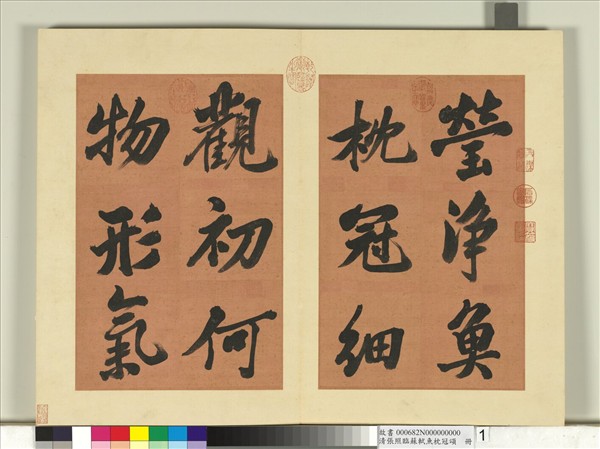 瑩淨魚
枕冠細
觀初何
物形氣
故書 000682N000000000
清張照臨蘇軾魚枕冠頌 冊
1